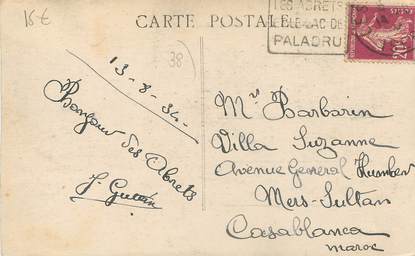 15€
CARTE POSTALE
LES ABRETS
LE LAC DE
PALADRU
20c
38
13-8-34-
Bonjour des Abrets
Mrs Barbarin
Villa Suzanne
Avenue General Humber
Mers-Sultan
Casablanca
maroc